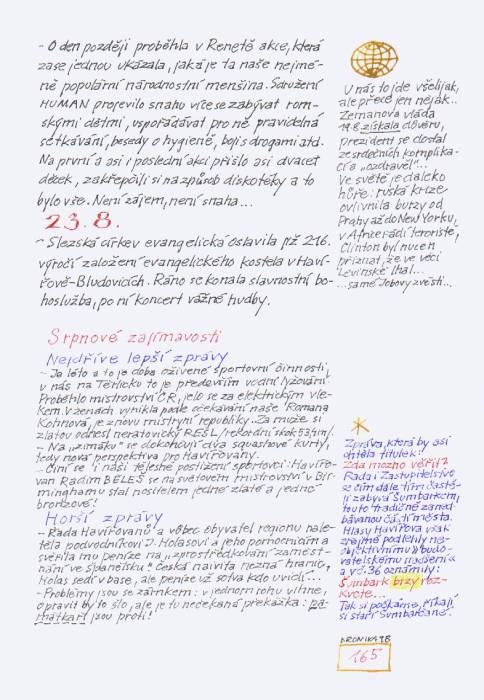 - O den později proběhla v Renetě akce, která
zase jednou ukázala, jaká je ta naše nejmé-
ně populární národnostní menšina. Sdružení
HUMAN projevilo snahu více se zabývat rom-
skými dětmi, uspořádávat pro ně pravidelná
setkávání, besedy o hygieně, boji s drogami atd.
Na první a asi i poslední akci přišlo asi dvacet
dětek, zakřepčili si na způsob diskotéky a to
bylo vše. Není zájem, není snaha...
23.8.
- Slezská církev evangelická oslavila již 216.
výročí založení evangelického kostela v Haví-
řově-Bludovicích. Ráno se konala slavnostní bo-
hoslužba, po ní koncert vážné hudby.
Srpnové zajímavosti
Nejdříve lepší zprávy
- Je léto a to je doba oživené sportovní činnosti,
u nás na Těrlicku to je především vodní lyžování.
Proběhlo mistrovství ČR, jelo se za elektrickým vle-
kem. V ženách vynikla podle očekávání naše Romana
Kohnová, je znovu mistryní republiky. Za muže si
zlatou odnesl neratovický REŠL /rekordní skok 53,4m/.
- Na "zimáku" se dokončují dva squashové kurty,
tedy nová perspektiva pro Havířovany.
- Činí se i naši tělesně postižení sportovci: Havířo-
van Radim BELEŠ se na světovém mistrovství v Bir-
minghamu stal nositelem jedné zlaté a jedné
bronzové!
Horší zprávy
- Řada Havířovanů a vůbec obyvatel regionu nale-
těla podvodníkovi J. Holasovi a jeho pomocníčkům a
svěřila mu peníze na "zprostředkování zaměst-
nání ve Španělsku". Česká naivita nezná hranic,
Holas sedí v base, ale peníze už sotva kdo uvidí...
- Problémy jsou se zámkem: v jednom rohu vlhne,
opravit by to šlo, ale je tu nečekaná překážka: pa-
mátkáři jsou proti!
U nás to jde všelijak,
ale přece jen nějak...
Zemanova vláda
19.8. získala důvěru,
prezident se dostal
ze srdečních komplika-
cí a "ozdravěl"...
Ve světě je daleko
hůře: ruská krize
ovlivnila burzy od
Prahy až do New Yorku,
v Africe řádí teroristé,
Clinton byl nucen
přiznat, že ve věci
Levinské lhal...
...samé Jobovy zvěsti...
Zpráva, která by asi
chtěla titulek:
Zda možno věřit?
Rada i Zastupitelstvo
se čím dále tím častě-
ji zabývá Šumbarkem,
touto tradičně zaned-
bávanou částí města.
Hlasy Havířova však
zřejmě podlehly ne-
objektivnímu "budo-
vatelskému nadšení"
a v č. 36 oznámily:
Šumbark brzy roz-
kvete...
Tak si počkáme, říkají
si staří Šumbarčané.
KRONIKA 98
165